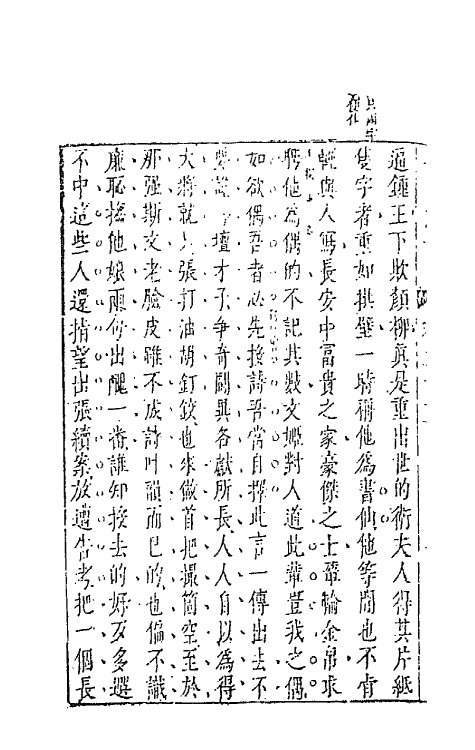 只兩字
逼鍾王下欺顏柳真是重出世的衛夫人得其片紙
隻字者重如拱璧一時稱他為書仙他等閒也不肯
輕與人寫長安中富貴之家豪傑之士輦輪金帛求
聘他為偶的不記其數文姬對人道此輩豈我之偶
如欲偶吾者必先投詩吾當自擇此言一傳出去不
要說 壇才子爭奇鬬異各獻所長人人自以為得
大將就是張打油胡釘鉸也來做首把撮箇空至於
那强斯文老臉皮雖不成詩叶韻而已的也偏不識
廉恥搊他娘兩句出醜一番誰知投去的好歹多選
不中這些人還指望出張續案放遭告考把一個長